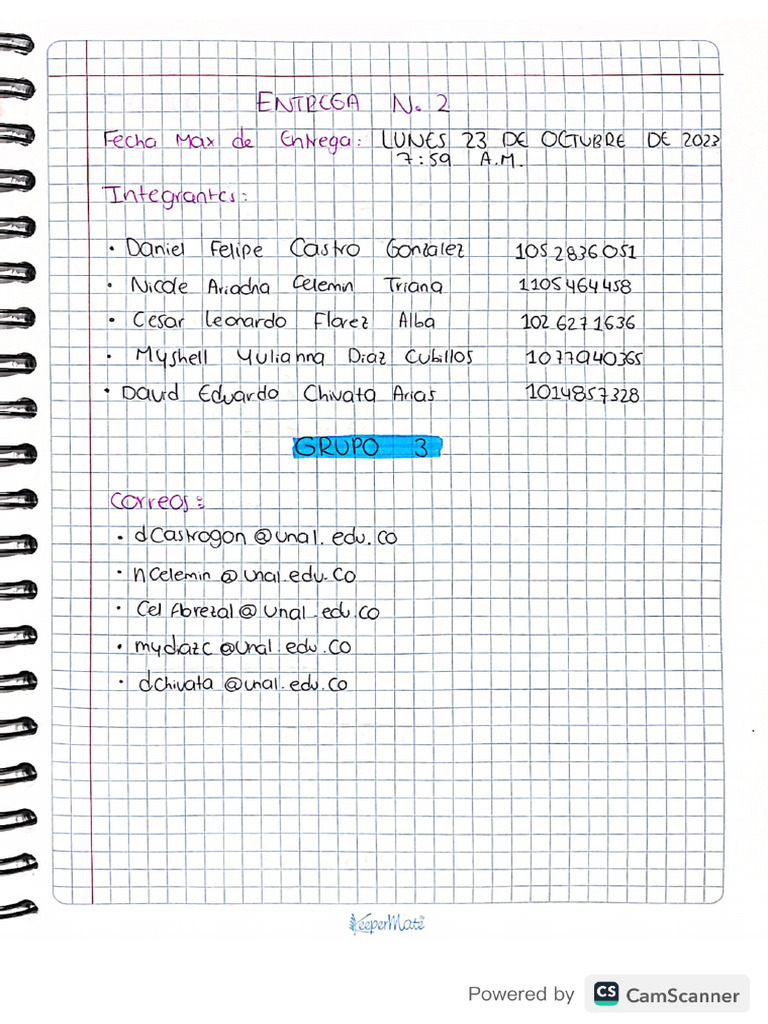 ENTREGA N. 2
Fecha Max de Entrega: LUNES 23 DE OCTUBRE DE 2023
7:59 A.M.
Integrantes:
• Daniel Felipe Castro Gonzalez 1052836051
• Nicole Ariadna Celemin Triana 1105464458
• Cesar Leonardo Florez Alba 1026271636
• Myshell Yulianna Diaz Cubillos 1077940365
• David Eduardo Chivata Arias 1014857328
GRUPO 3
Correos:
• dcastrogon@unal.edu.co
• ncelemin@unal.edu.co
• Cel Aforezal@unal.edu.co
• mydiazc@unal.edu.co
• dchivata@unal.edu.co
KeeperMate
Powered by CS CamScanner